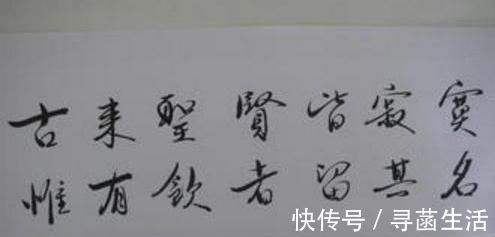 古来聖賢皆寂寞
惟有飲者留其名
快传号 / 寻菡生活